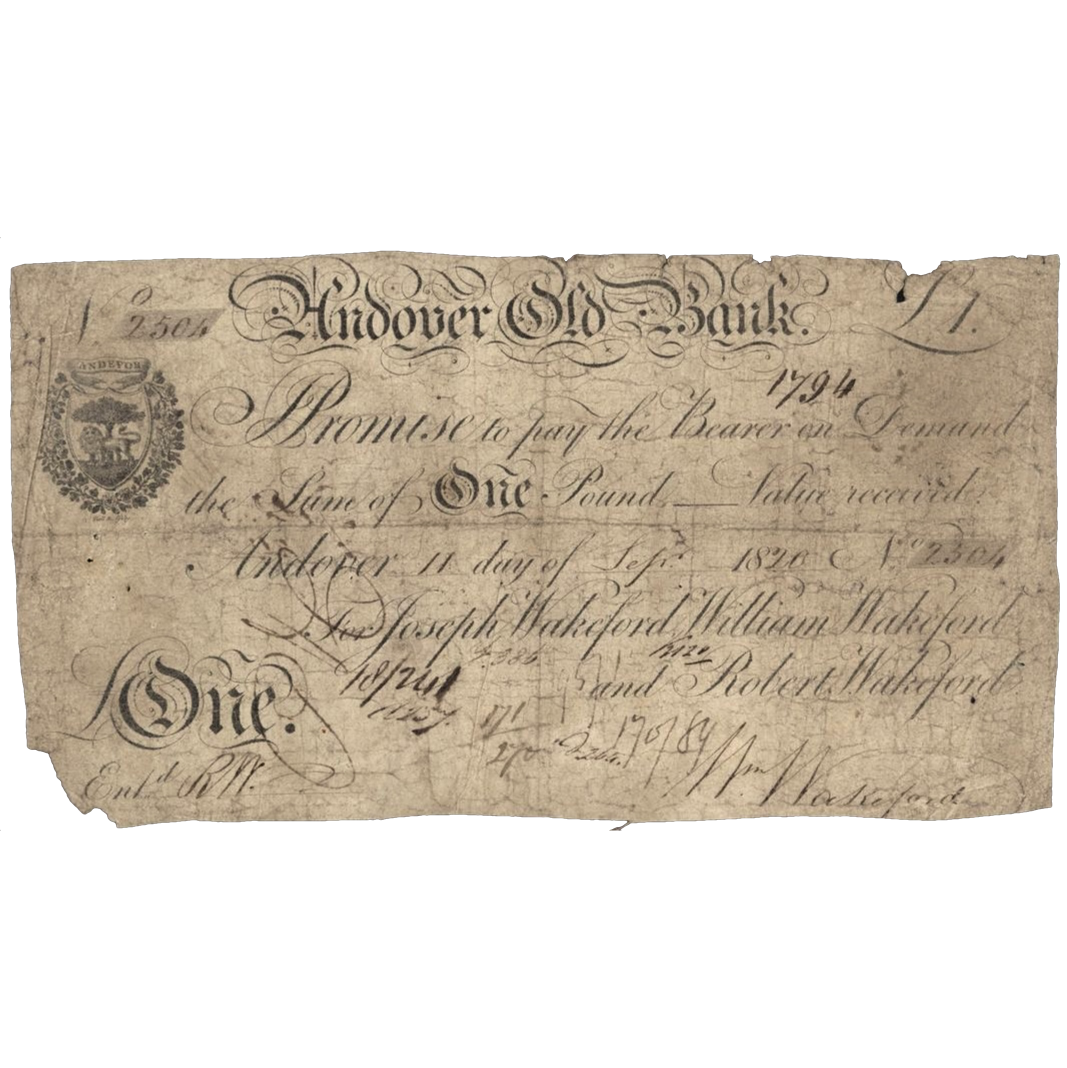 No 2504 Andover Old Bank. £1.
ANDEVOR
1794
I Promise to pay the Bearer on Demand
the Sum of One Pound Value received.
Andover 11 day of Sepr. 1820 No 2504
For Joseph Wakeford, William Wakeford
and Robert Wakeford
18/241
171
170/89
One.
Entd RW. Wm Wakeford